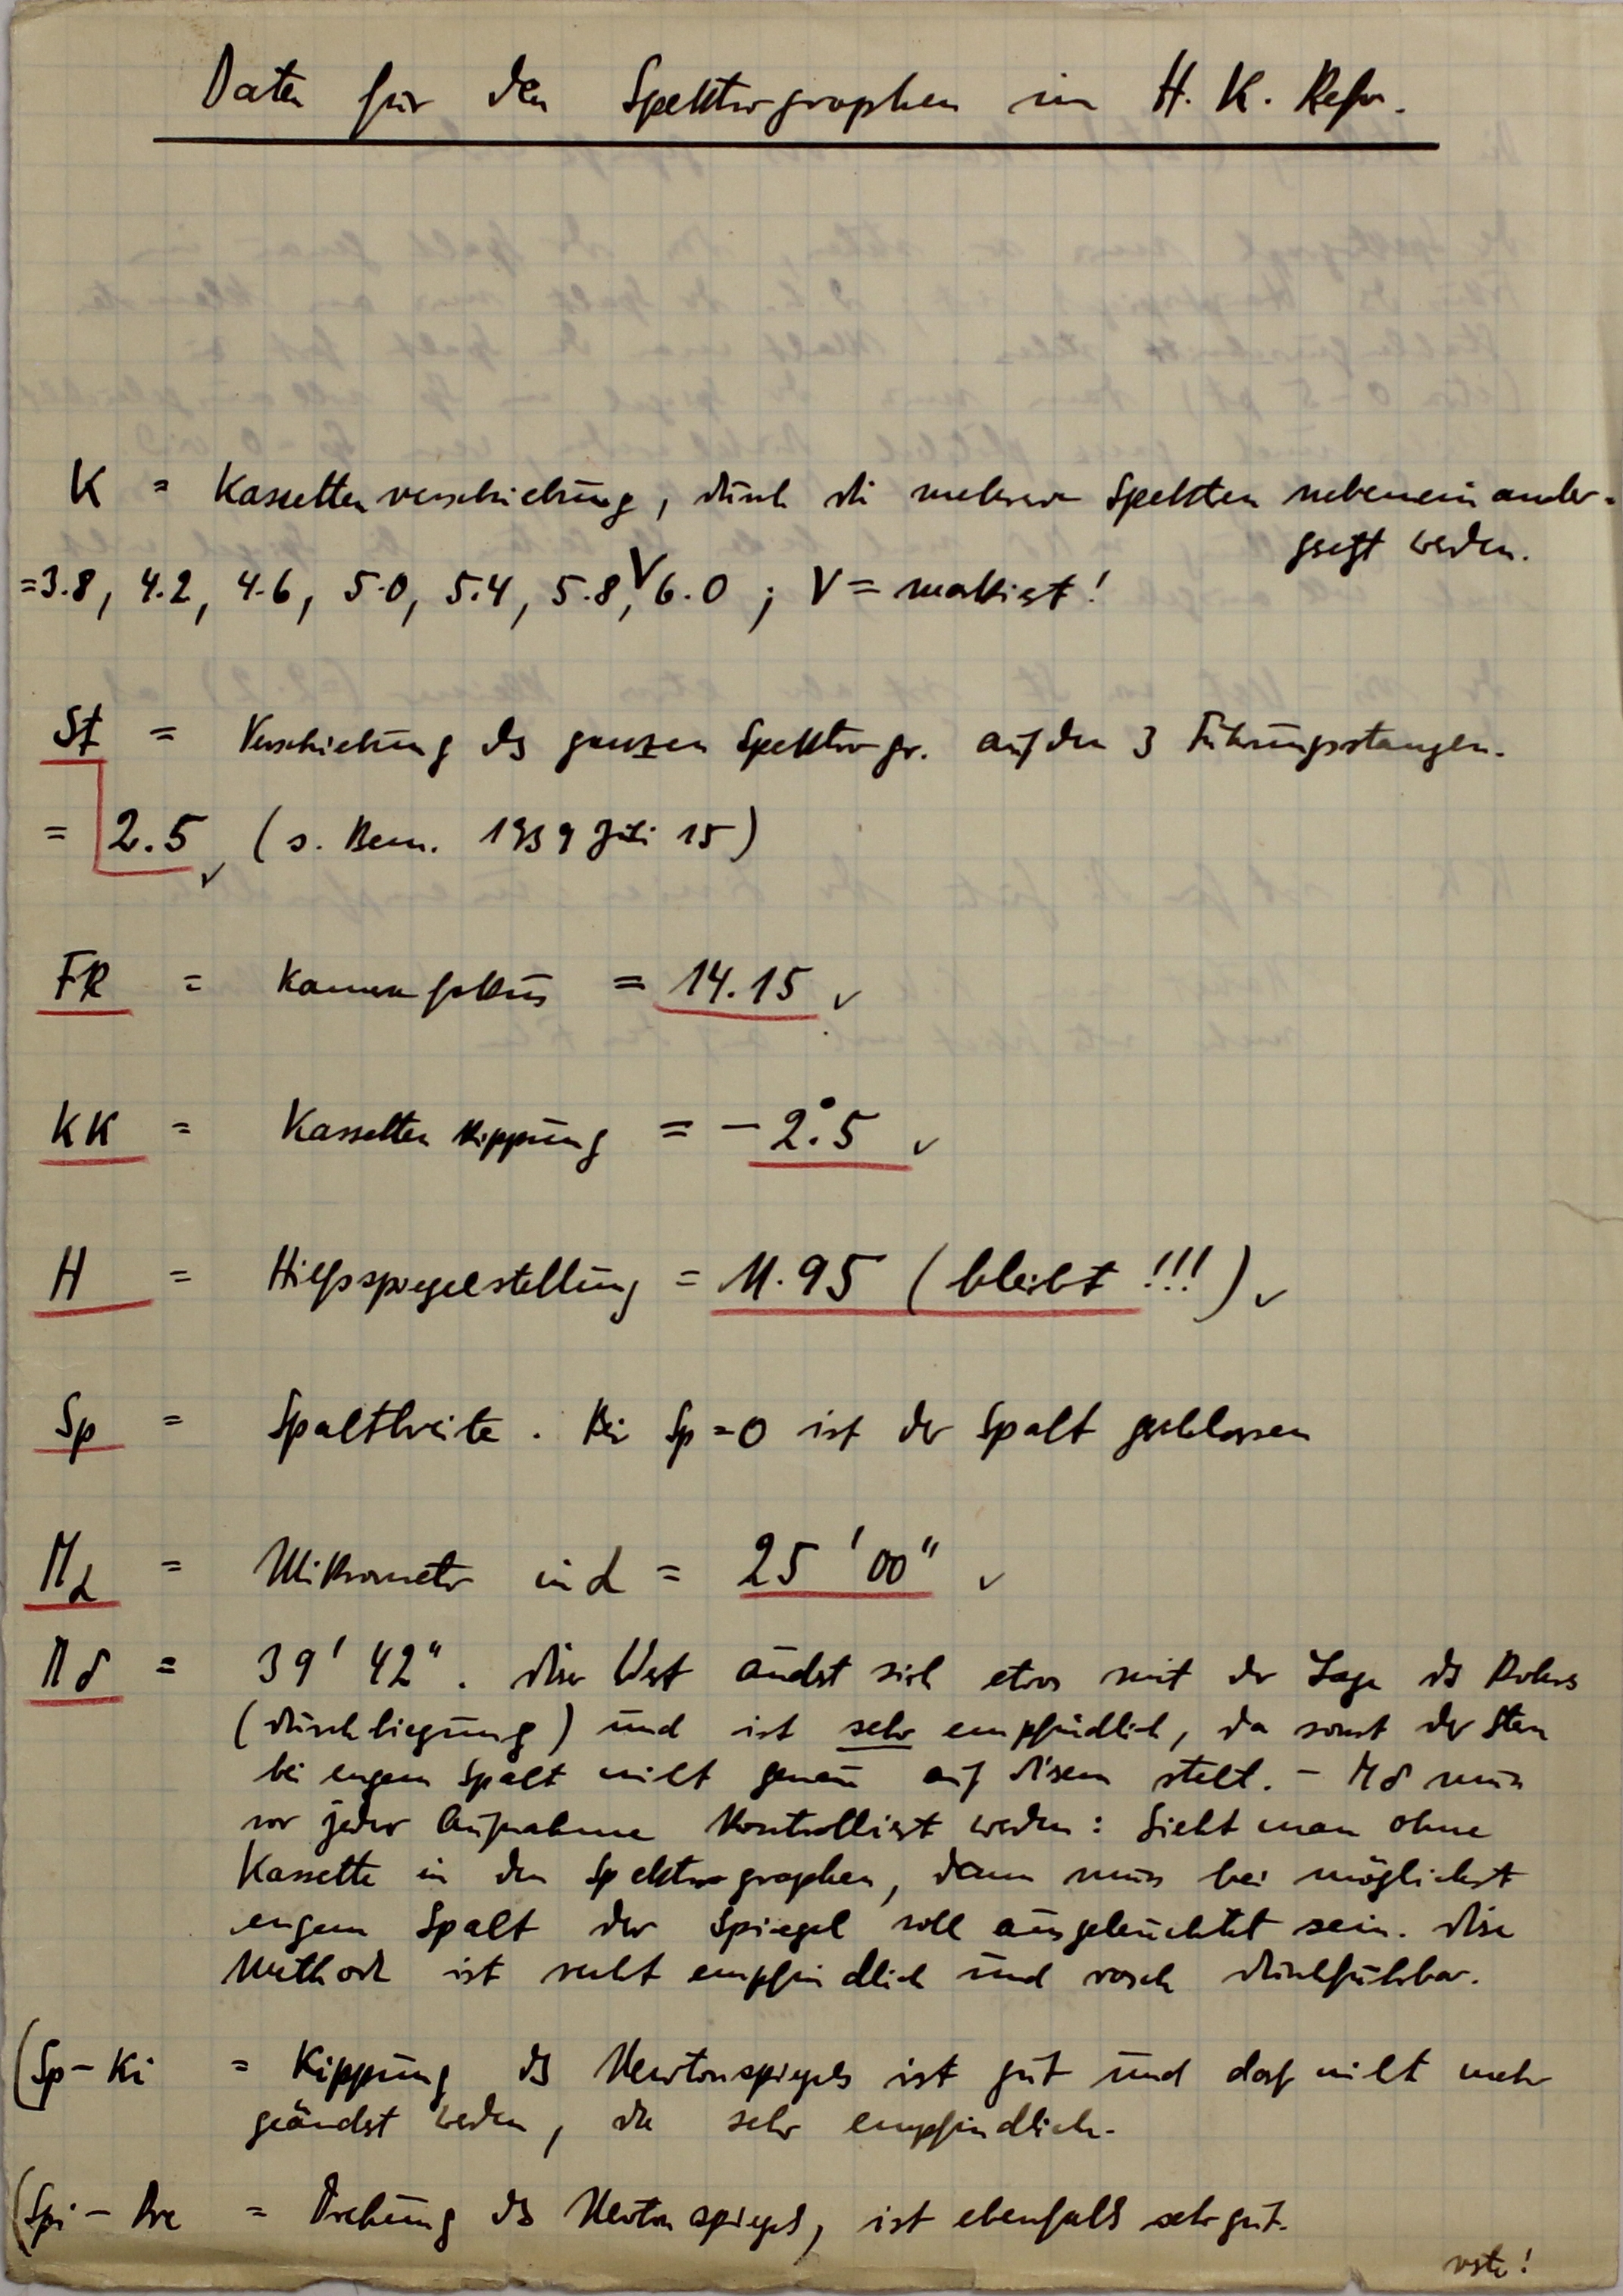 Daten für den Spektrographen im H. K. Refr.
K = Kassettenverschiebung, durch die mehrere Spektren nebeneinander-
gesetzt werden.
=3.8, 4.2, 4.6, 5.0, 5.4, 5.8,V 6.0 ; V = markiert!
St = Verschiebung des ganzen Spektrogr. auf den 3 Führungsstangen.
= 2.5 (s. Bem. 1939 Juli 15)
FK = Kamerafokus = 14.15
KK = Kassettenkippung = -2°.5
H = Hilfsspiegelstellung = 11.95 (bleibt !!!)
Sp = Spaltbreite. Bei Sp=0 ist der Spalt geschlossen
Mα = Mikrometer in α = 25' 00"
Mδ = 39' 42". Dieser Wert ändert sich etwas mit der Lage des Rohres
(Durchbiegung) und ist sehr empfindlich, da sonst der Stern
bei engem Spalt nicht genau auf diesem steht. - Mδ muss
vor jeder Aufnahme kontrolliert werden: Sieht man ohne
Kassette in den Spektrographen, dann muss bei möglichst
engem Spalt der Spiegel voll ausgeleuchtet sein. Diese
Methode ist recht empfindlich und rasch durchführbar.
(Sp-Ki = Kippung des Newtonspiegels ist gut und darf nicht mehr
geändert werden, da sehr empfindlich.
(Spi-Dre = Drehung des Newtonspiegels, ist ebenfalls sehr gut.